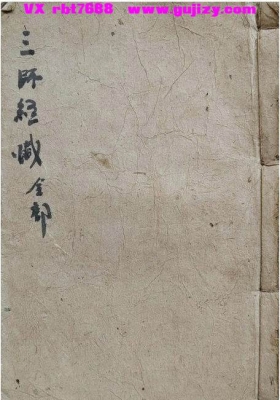 VX rbt7688 www.gujizy.com
三师經懺全部